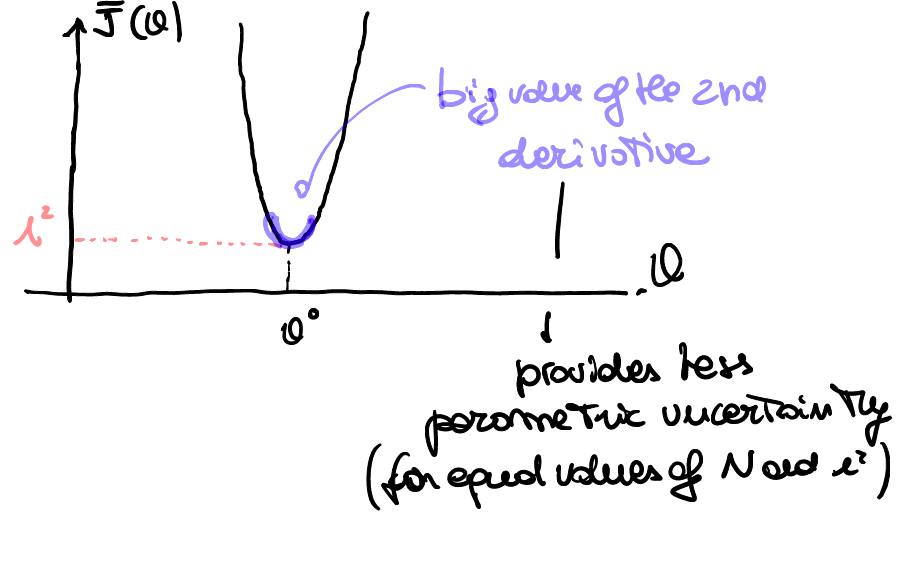 J̄(θ)
big value of the 2nd
derivative
λ²
θ
θ°
provides less
parametric uncertainty
(for equal values of N and λ²)